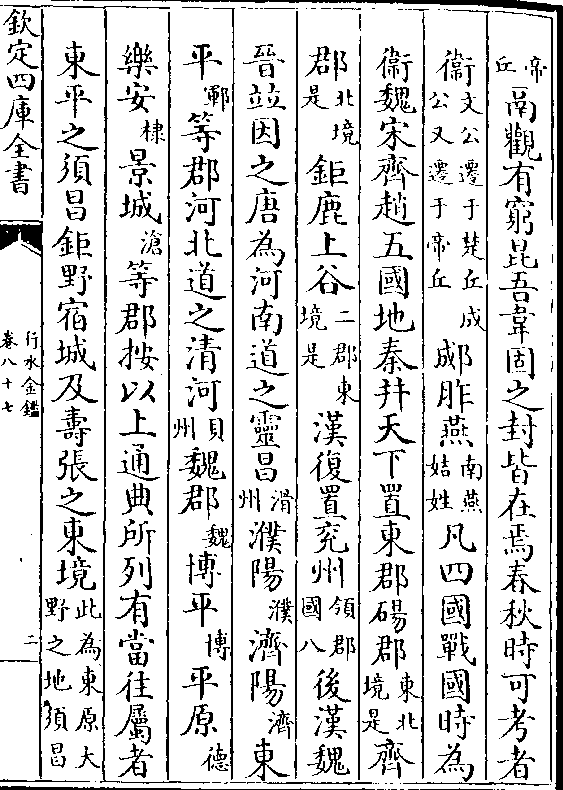 帝丘鬲觀有窮昆吾韋固之封皆在焉春秋時可考者
衞文公遷于楚丘成公又遷于帝丘郕胙燕南燕姞姓凡四國戰國時為
衛魏宋齊趙五國地秦并天下置東郡碭郡東北境是齊
郡北境是鉅鹿上谷二郡東境是漢復置兖州領郡國八後漢魏
晉竝因之唐為河南道之靈昌滑州濮陽濮濟陽濟東
平鄆等郡河北道之清河貝州魏郡魏博平博平原德
樂安棣景城滄等郡按以上通典所列有當往屬者
東平之須昌鉅野宿城及壽張之東境此為東原大野之地須昌
欽定四庫全書
行水金鑑
卷八十七
二